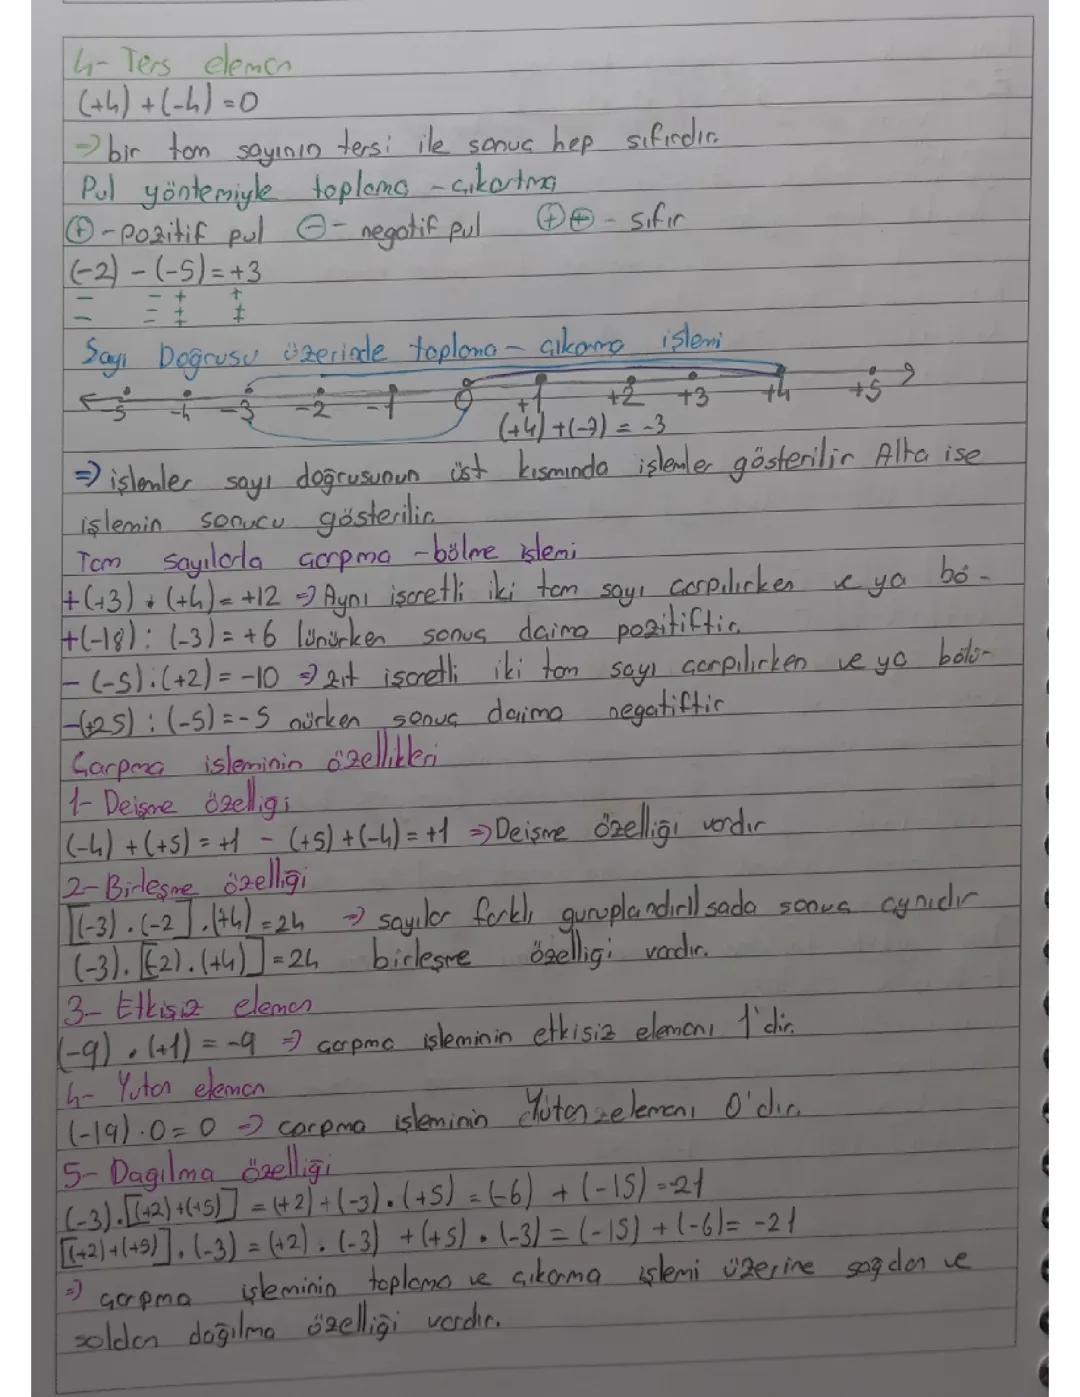 4- Ters eleman
(+4) + (-4) = 0
⇒ bir tam sayının tersi ile sonuç hep sıfırdır.
Pul yöntemiyle toplama - çıkartma
⊕ - pozitif pul ⊖ - negatif pul ⊕⊖ - sıfır
(-2) - (-5) = +3
- - + +
- = ‡ ‡
Sayı Doğrusu üzerinde toplama - çıkarma işlemi
-5 -4 -3 -2 -1 0 +1 +2 +3 +4 +5
(+4) + (-7) = -3
⇒ işlemler sayı doğrusunun üst kısmında işlemler gösterilir Alta ise
işlemin sonucu gösterilir.
Tam sayılarla çarpma - bölme işlemi
+(+3) . (+4) = +12 ⇒ Aynı işaretli iki tam sayı çarpılırken ve ya bö-
+(-18) : (-3) = +6 lünürken sonuç daima pozitiftir.
- (-5) . (+2) = -10 ⇒ zıt işaretli iki tam sayı çarpılırken ve ya bölü-
-(+25) : (-5) = -5 nürken sonuç daima negatiftir
Çarpma işleminin özellikleri
1- Deişme özelliği
(-4) + (+5) = +1 - (+5) + (-4) = +1 ⇒ Deişme özelliği vardır
2- Birleşme özelliği
[(-3) . (-2] . (+4) = 24 ⇒ sayılar farklı guruplandırıl sada sonuç aynıdır
(-3) . [(-2) . (+4)] = 24 birleşme özelliği vardır.
3- Etkisiz eleman
(-9) . (+1) = -9 ⇒ çarpma işleminin etkisiz elemanı 1'dir.
4- Yutan eleman
(-19) . 0 = 0 ⇒ çarpma işleminin Yutan elemanı 0'dır.
5- Dağılma özelliği
(-3) . [(+2) + (+5)] = (+2) + (-3) . (+5) = (-6) + (-15) = -21
[(+2) + (+5)] . (-3) = (+2) . (-3) + (+5) . (-3) = (-15) + (-6) = -21
⇒ çarpma işleminin toplama ve çıkarma işlemi üzerine sağdan ve
soldan dağılma özelliği vardır.